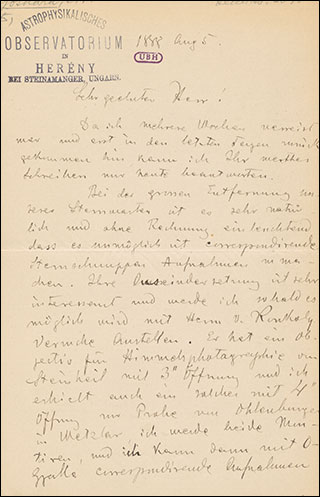 ASTROPHYSIKALISCHES
OBSERVATORIUM
IN
HERÉNY
BEI STEINAMANGER, UNGARN.
1888 Aug 5.
UBH
Sehr geehrter Herr!
Da ich mehrere Wochen verreist
war und erst in den letzten Tagen zurück
gekommen bin kann ich Ihr werthes
Schreiben nur heute beantworten.
Bei der grossen Entfernung un
serer Sternwarten ist es sehr natür
lich und ohne Rechnung einleuchtend
dass es unmöglich ist correspondirende
Sternschnuppen Aufnahmen zu ma-
chen. Ihre Auseindersetzung ist sehr
interessant und werde ich sobald es
möglich wird mit Herrn v. Konkoly
Versuche Anstellen. Er hat ein Ob-
jectiv für Himmelsphotographie von
Steinheil mit 3" Öffnung und ich
erhielt auch ein solches mit 4"
Öffnung zur Probe von
in Wetzlar ich werde beide Mon-
tiren, und ich kann dann mit O-
Gyalla correspondirende Aufnahmen